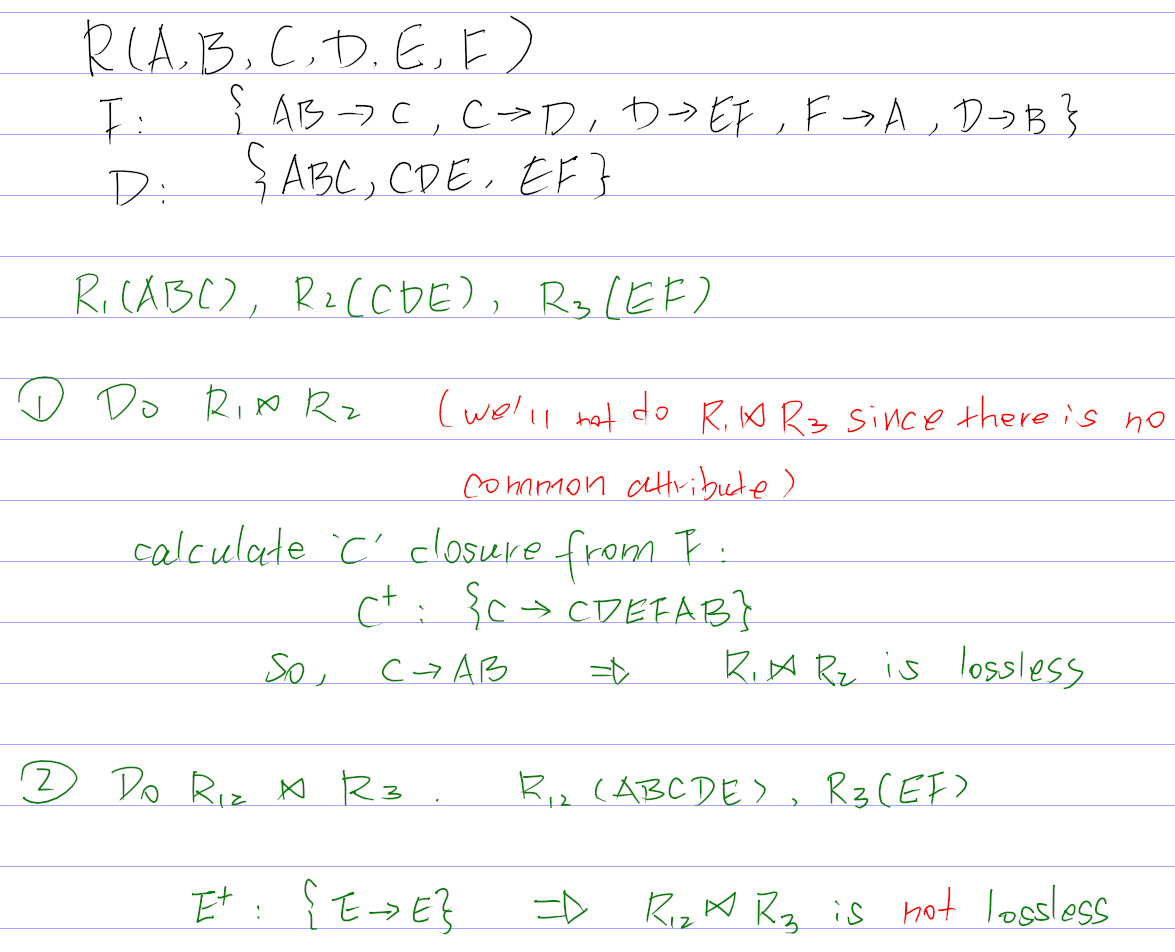 R(A,B,C,D,E,F)
F: { AB → C, C → D, D → EF, F → A, D → B }
D: { ABC, CDE, EF }
R₁(ABC), R₂(CDE), R₃(EF)
① Do R₁ ⋈ R₂ (we'll not do R₁ ⋈ R₃ since there is no
common attribute)
calculate 'C' closure from F:
C⁺ : {C → CDEFAB}
So, C → AB ⇒ R₁ ⋈ R₂ is lossless
② Do R₁₂ ⋈ R₃. R₁₂ (ABCDE), R₃(EF)
E⁺ : { E → E} ⇒ R₁₂ ⋈ R₃ is not lossless